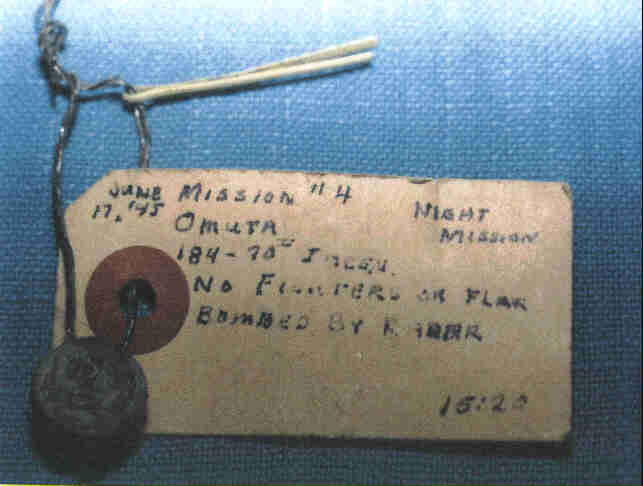 JUNE
17, '45
MISSION #4
NIGHT
MISSION
OMUTA
184 - 70# INCEN.
NO FIGHTERS OR FLAK
BOMBED BY RADAR
15:20